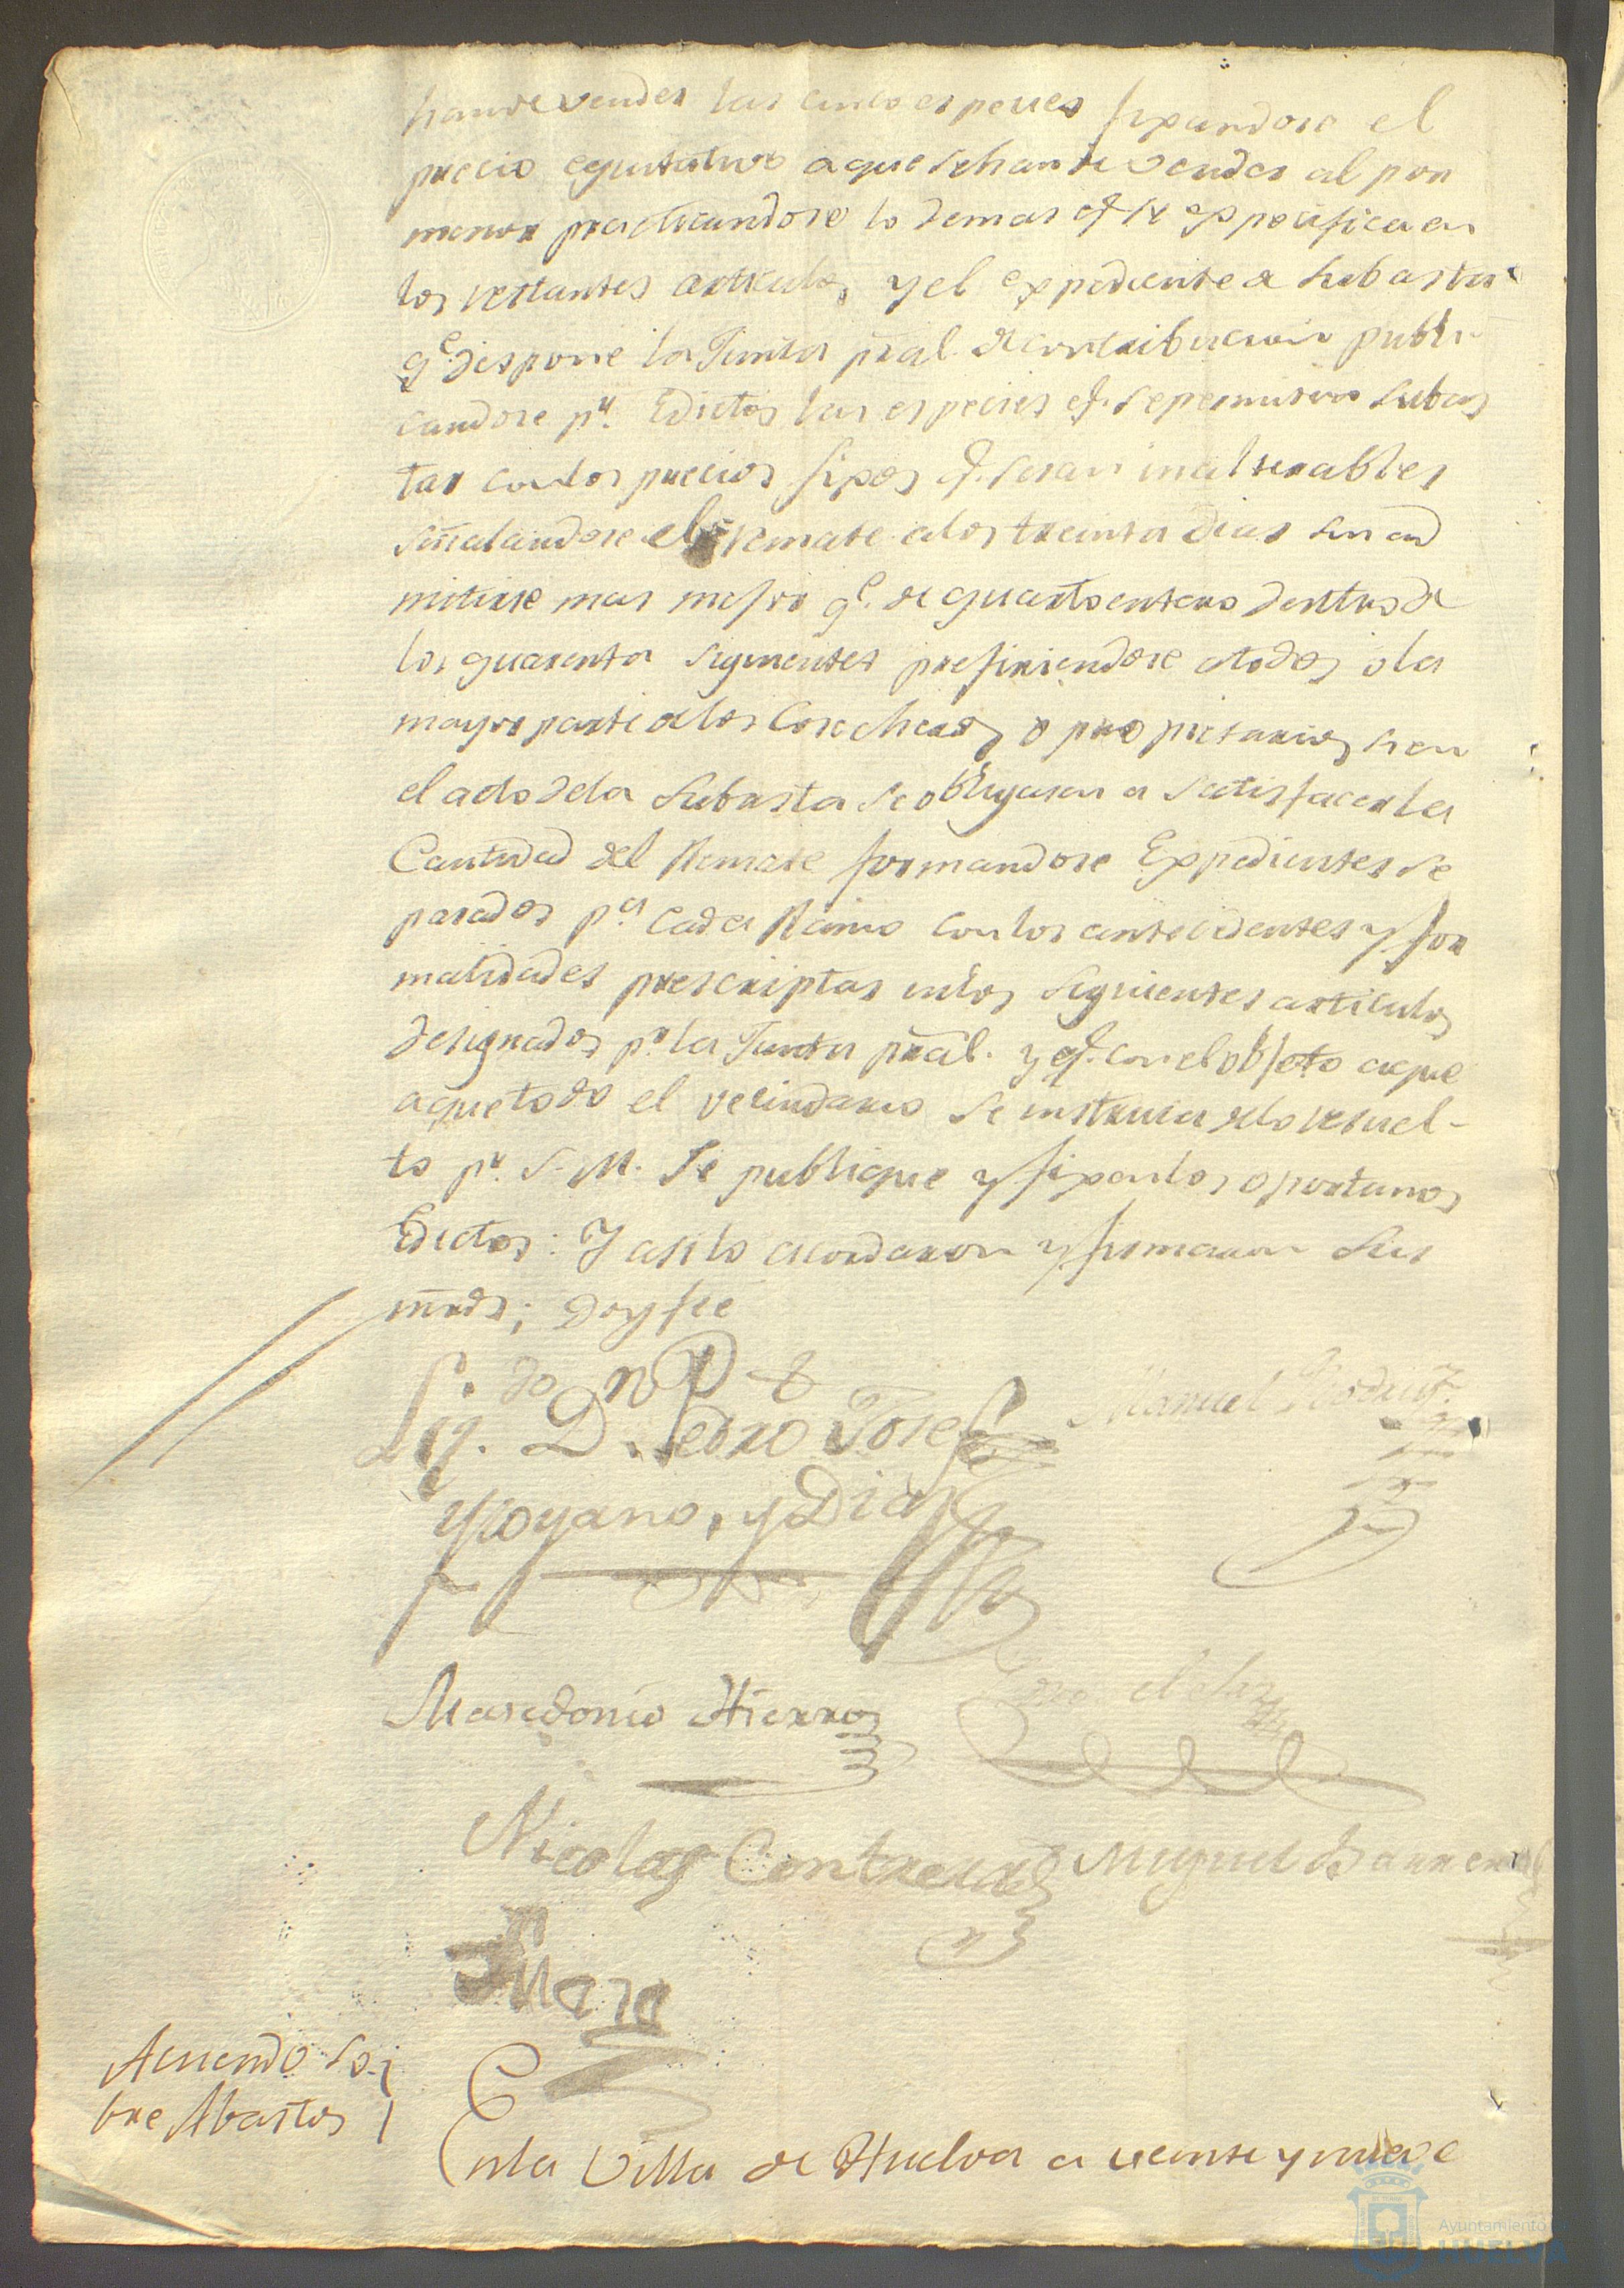 han de vender las cinco especies fixandose el
precio equitativo a que se han de vender al por
menor practicandose lo demas q.e se expecifica en
los restantes articulos, y el expediente de subasta
q.e dispone la Junta pral. de contribucion publi
candose p.r Edictos las especies q.e se permiten subas
tar con los precios fixos q.e seran inalterables
señalandose el remate a los treinta dias sin ad
mitirse mas mejora q.e de quarto entero dentro de
los quarenta siguientes prefiriendose a todos o la
mayor parte de los Cosecheros o propietarios si en
el acto de la Subasta se obligasen a satisfacer la
Cantidad del Remate formandose Expedientes se
parados p.a cada Ramo con los antecedentes y for
malidades prescriptas en los siguientes articulos
designados p.r la Junta pral. y q.e con el objeto de que
a que todo el vecindario se instruia de lo resuel-
to p.r S. M. Se publique y fixen los oportunos
Edictos: Y asi lo acordaron y firmaron sus
mrds; doy fee
Lig.do D.n Pedro Josef
y Diaz
Manuel
Macedonio Hierro
Nicolas Contreras
Miguel Barrera
Acuerdo so-
bre Abastos
En la Villa de Huelva a veinte y nueve
Ayuntamiento de
HUELVA